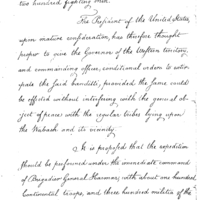 two hundred fighting men.
The President of the United States,
upon mature consideration, has therefore thought
proper to give the Governor of the Western territory,
and commanding officer, conditional orders to extir-
pate the said banditti, provided the same could
be effected without interfering with the general ob-
ject of peace with the regular tribes lying upon
the Wabash and its vicinity.
It is proposed that the expedition
should be performed under the immediate command
of Brigadier General Harmar, with about one hundred
Continental troops, and three hundred militia of the